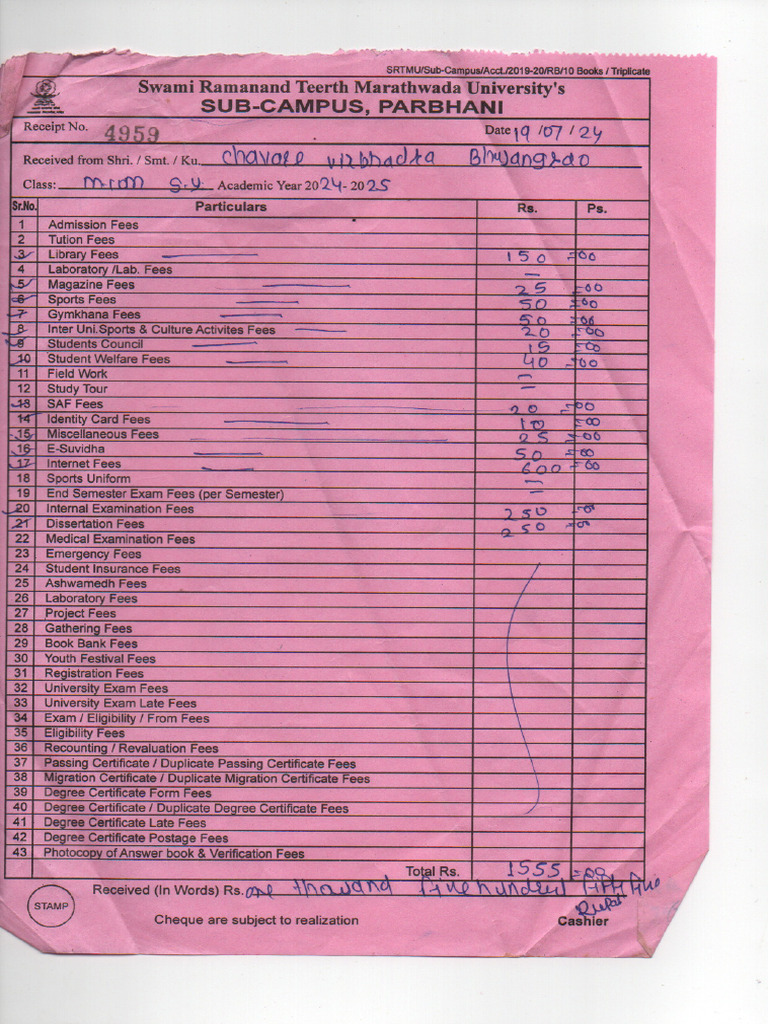 SRTMU/Sub-Campus/Acct./2019-20/RB/10 Books / Triplicate
Swami Ramanand Teerth Marathwada University's
SUB-CAMPUS, PARBHANI
Receipt No. 4959 Date 19/07/24
Received from Shri. / Smt. / Ku. Chavare Virbhadra Bhujangrao
Class: S.Y. Academic Year 2024-2025
Sr.No. Particulars Rs. Ps.
1 Admission Fees
2 Tution Fees
3 Library Fees 150 =00
4 Laboratory /Lab. Fees —
5 Magazine Fees 25 =00
6 Sports Fees 50 =00
7 Gymkhana Fees 50 =00
8 Inter Uni.Sports & Culture Activites Fees 20 =00
9 Students Council 15 =00
10 Student Welfare Fees 40 =00
11 Field Work —
12 Study Tour —
13 SAF Fees 20 =00
14 Identity Card Fees 10 =00
15 Miscellaneous Fees 25 =00
16 E-Suvidha 50 =00
17 Internet Fees 600 =00
18 Sports Uniform —
19 End Semester Exam Fees (per Semester) —
20 Internal Examination Fees 250
21 Dissertation Fees 250
22 Medical Examination Fees
23 Emergency Fees
24 Student Insurance Fees
25 Ashwamedh Fees
26 Laboratory Fees
27 Project Fees
28 Gathering Fees
29 Book Bank Fees
30 Youth Festival Fees
31 Registration Fees
32 University Exam Fees
33 University Exam Late Fees
34 Exam / Eligibility / From Fees
35 Eligibility Fees
36 Recounting / Revaluation Fees
37 Passing Certificate / Duplicate Passing Certificate Fees
38 Migration Certificate / Duplicate Migration Certificate Fees
39 Degree Certificate Form Fees
40 Degree Certificate / Duplicate Degree Certificate Fees
41 Degree Certificate Late Fees
42 Degree Certificate Postage Fees
43 Photocopy of Answer book & Verification Fees
Total Rs. 1555 =00
Received (In Words) Rs. one thousand five hundred fifty five
STAMP
Cheque are subject to realization
Cashier